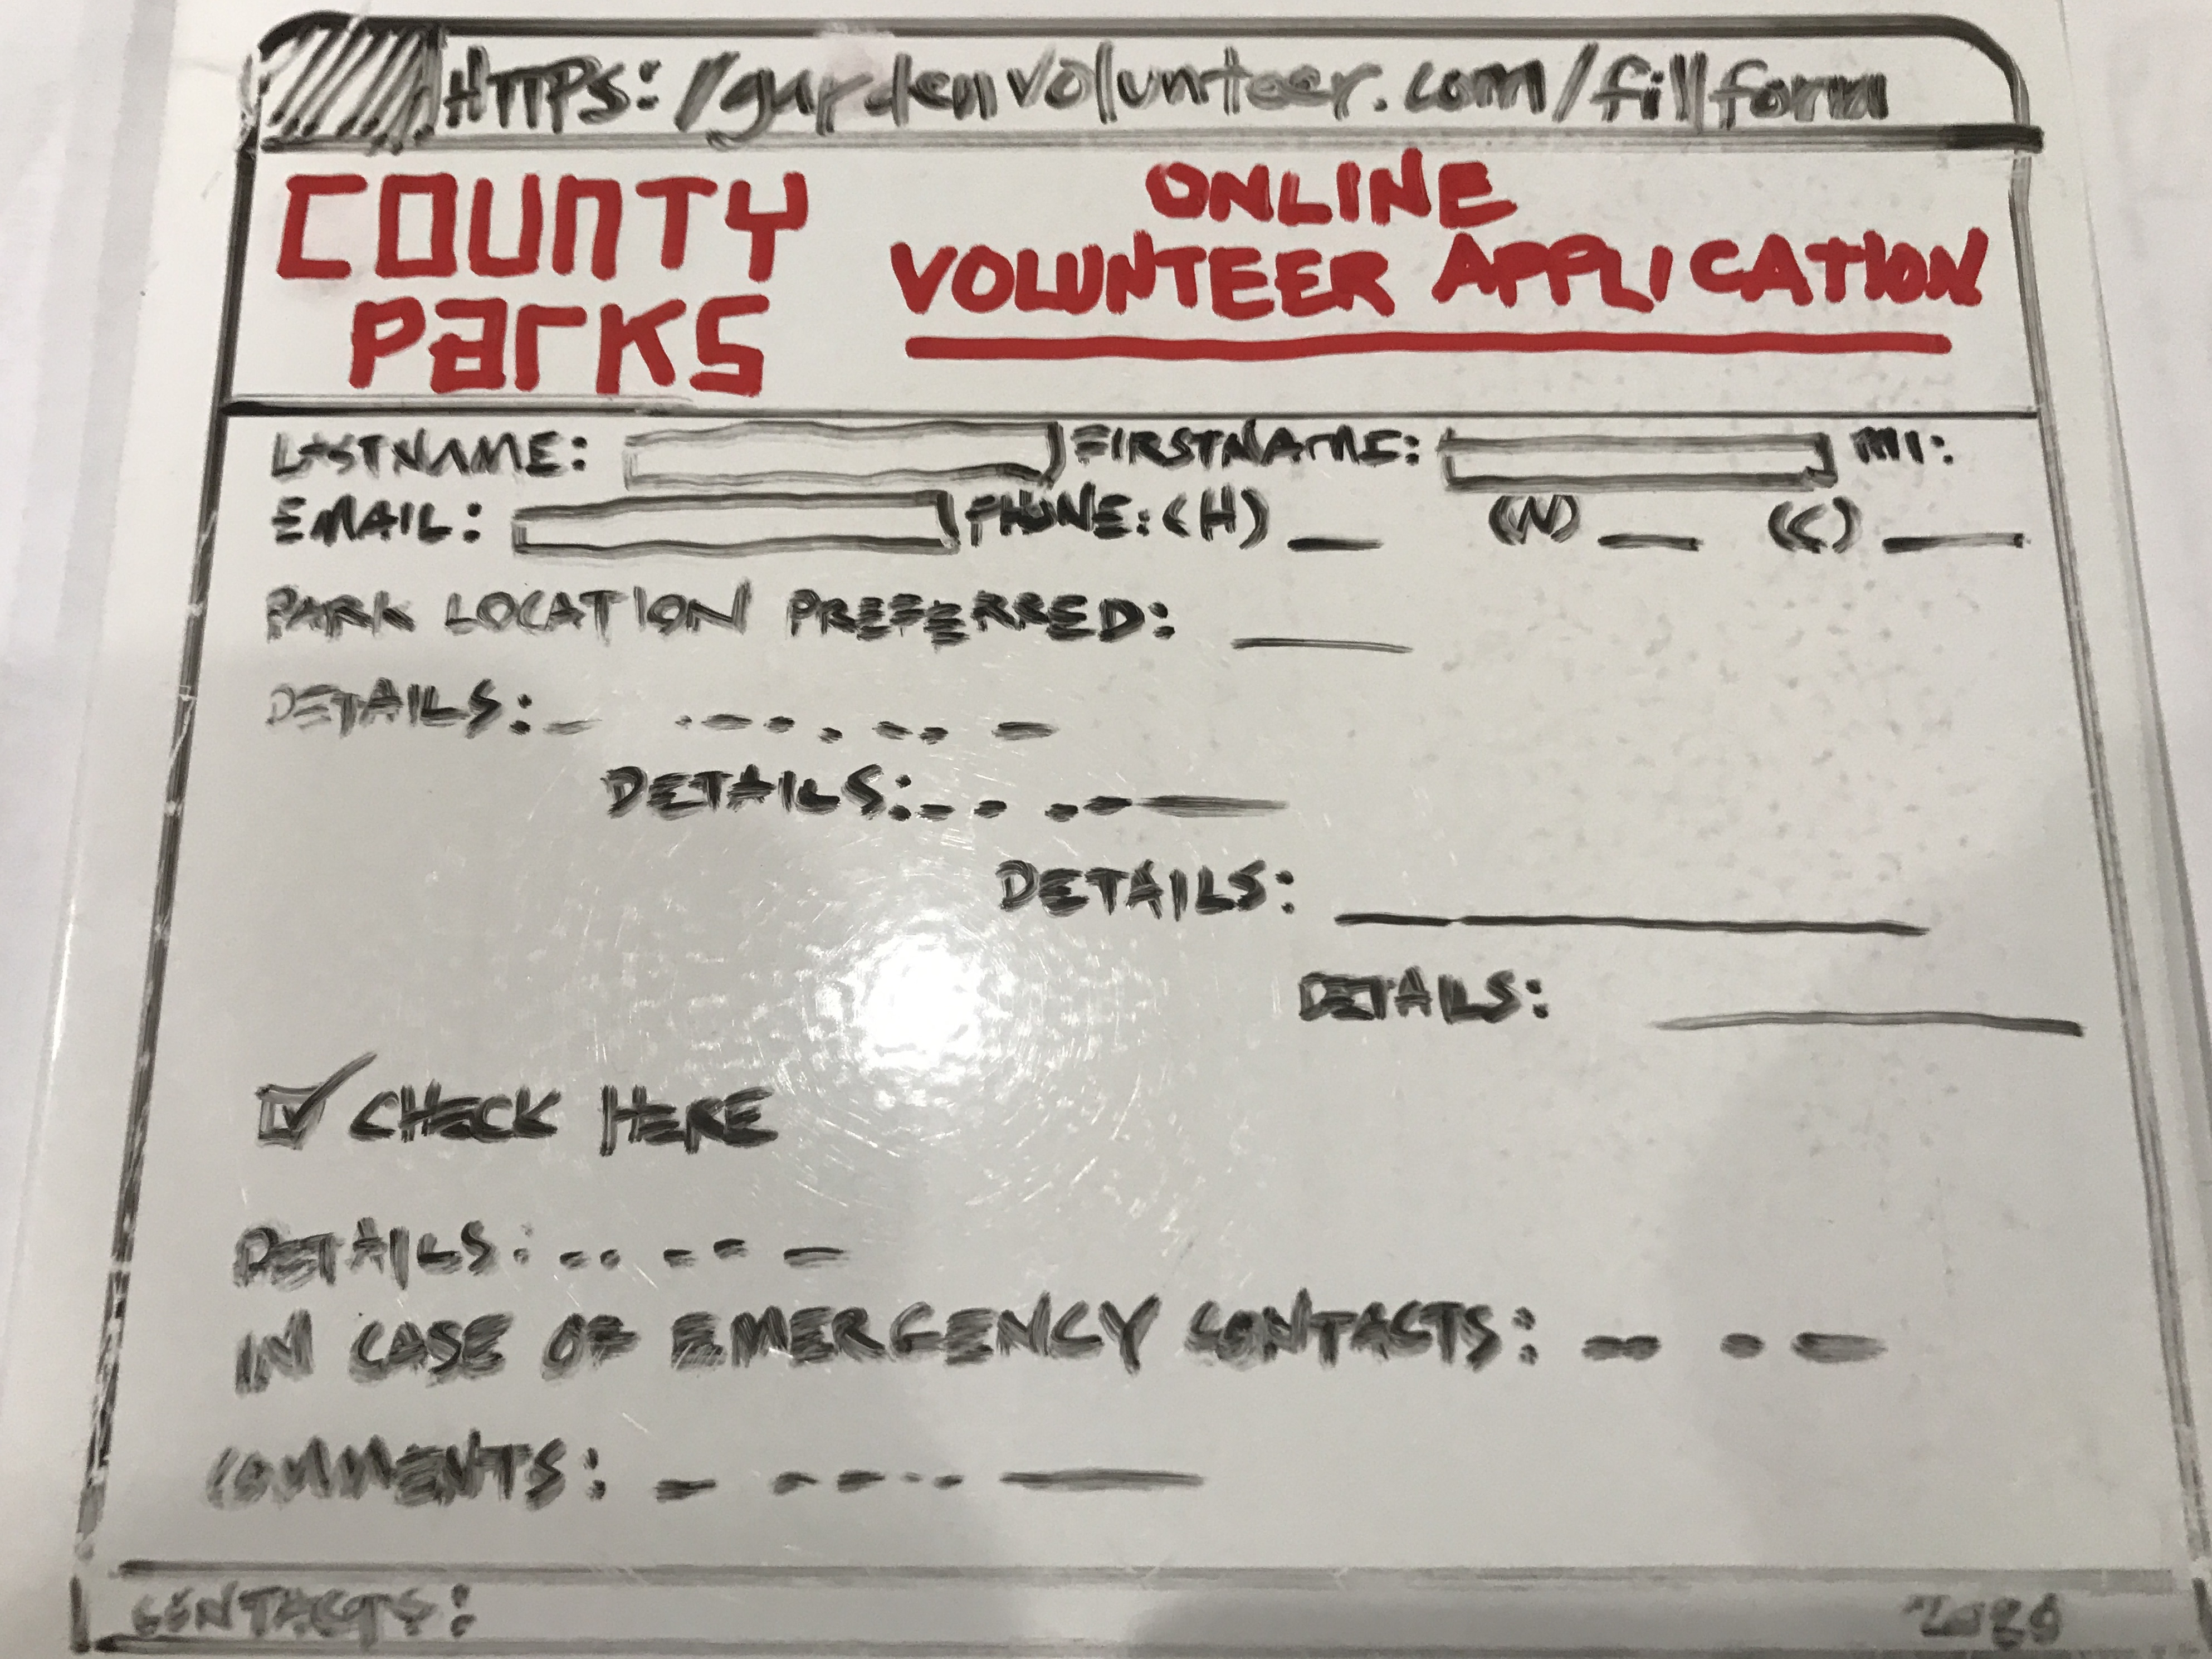 HTTPS://gardenvolunteer.com/fillform
COUNTY
ParKS
ONLINE
VOLUNTEER APPLICATION
LASTNAME: FIRSTNAME: MI:
EMAIL: PHONE: (H) __ (W) __ (C) __
PARK LOCATION PREFERRED: __
DETAILS:
DETAILS:
DETAILS:
DETAILS:
CHECK HERE
DETAILS:
IN CASE OF EMERGENCY CONTACTS:
COMMENTS:
CONTACTS: